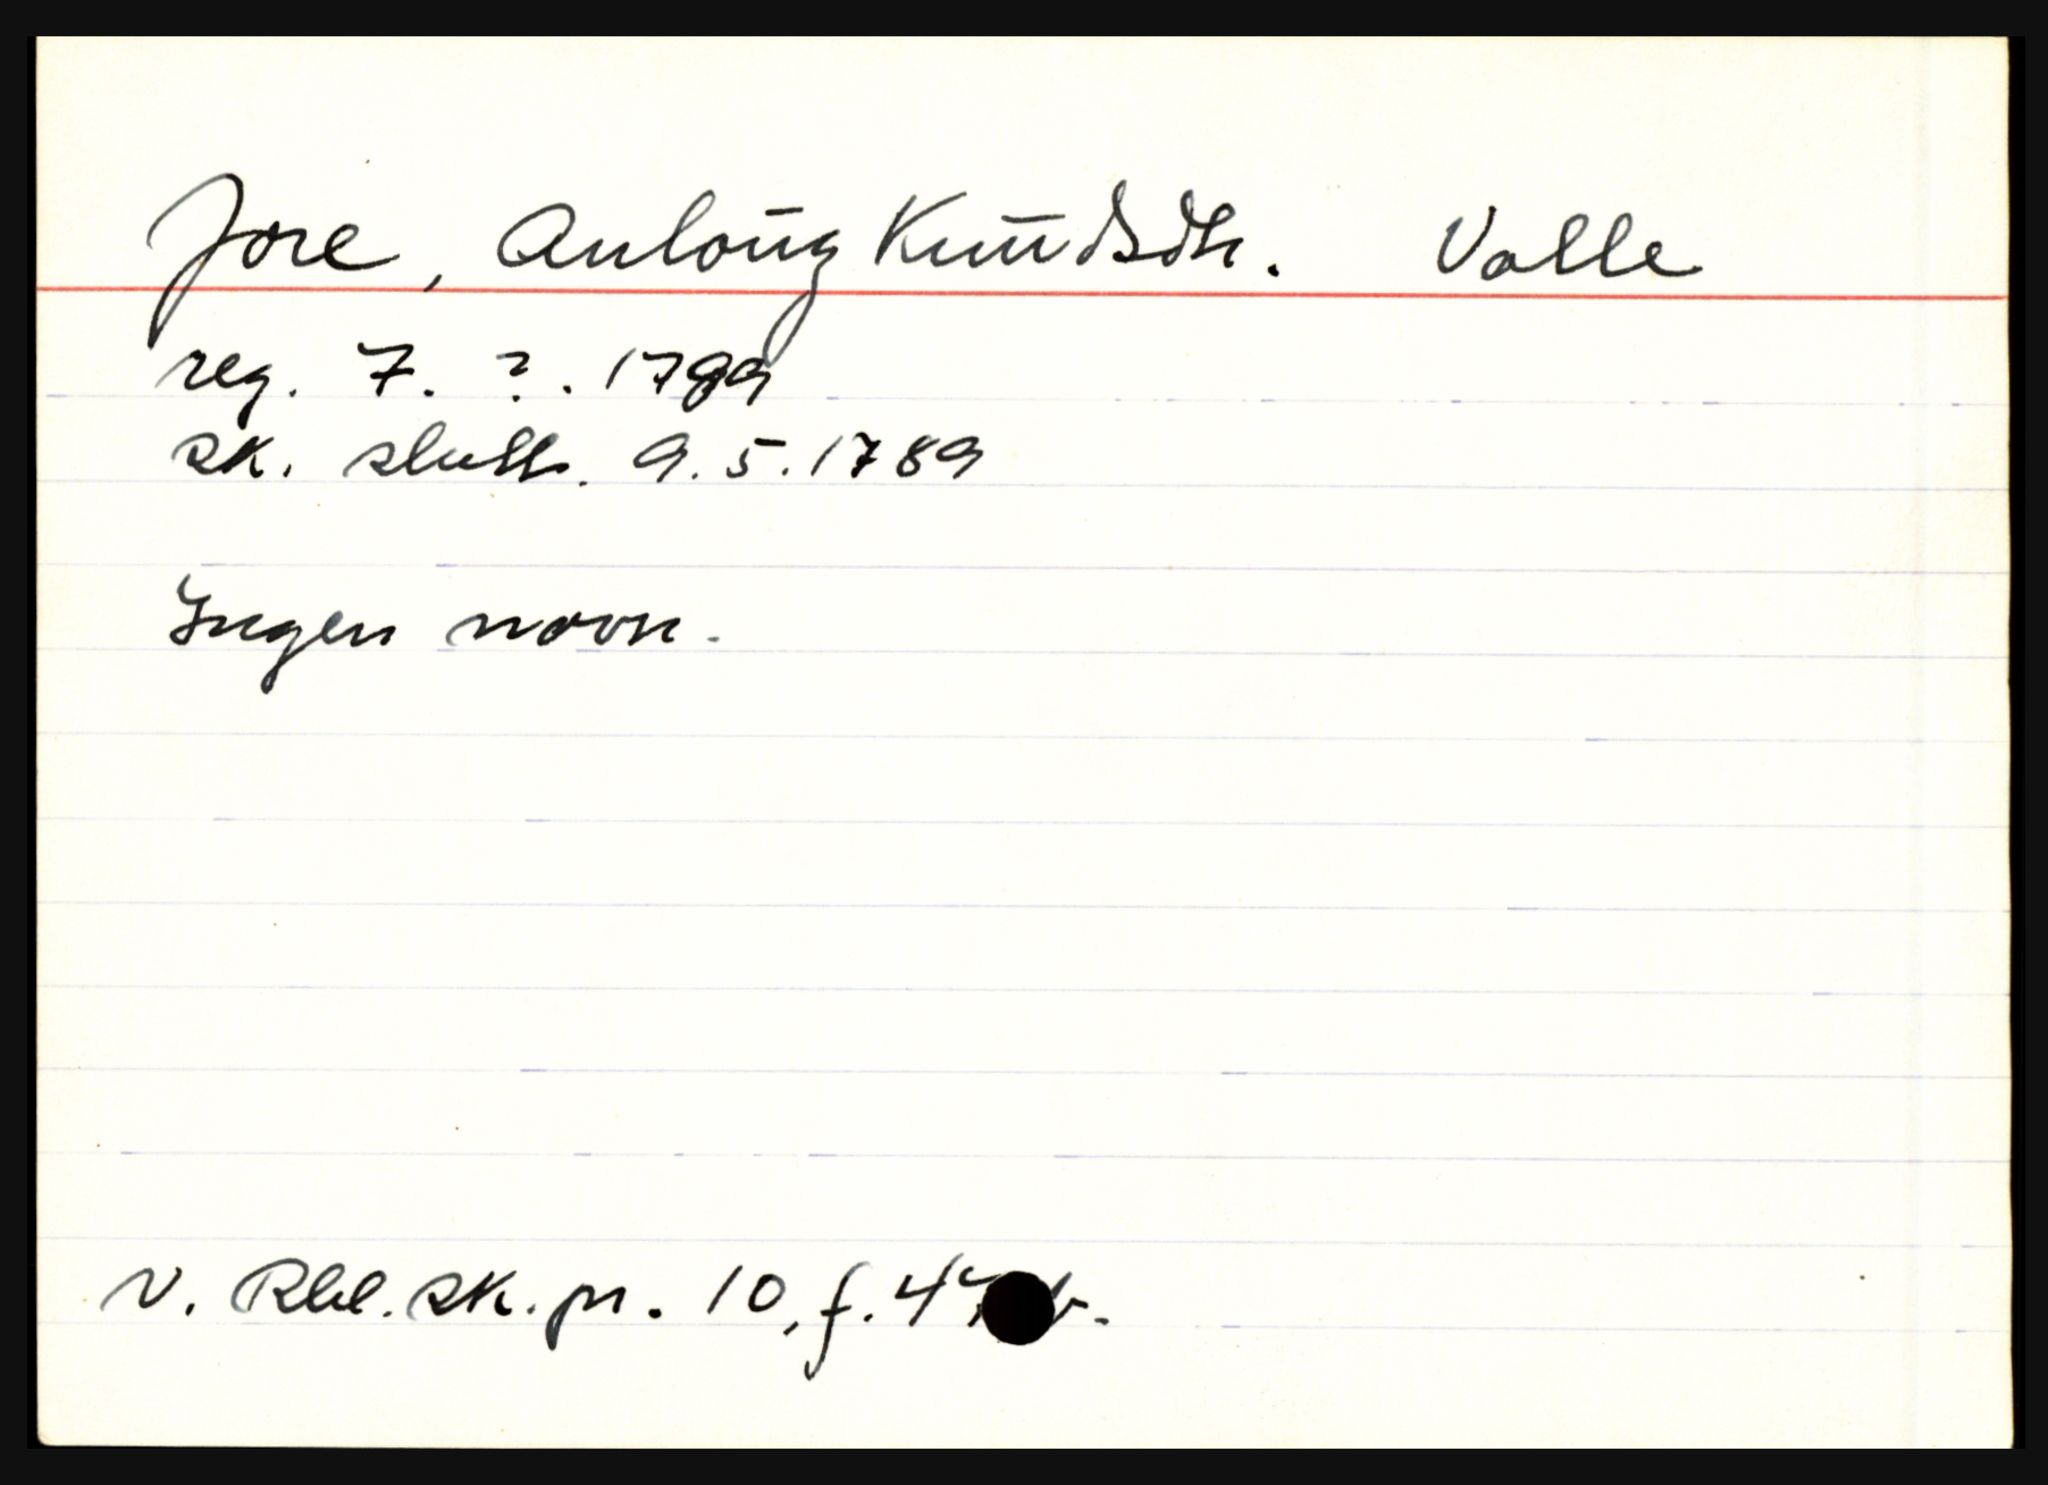 Jore, Anloug Knudsdtr. Valle
reg. 7. ?. 1789
sk. slutt. 9.5.1789
Ingen navn.
V. Rbl. sk. pr. 10, f. 47 b.